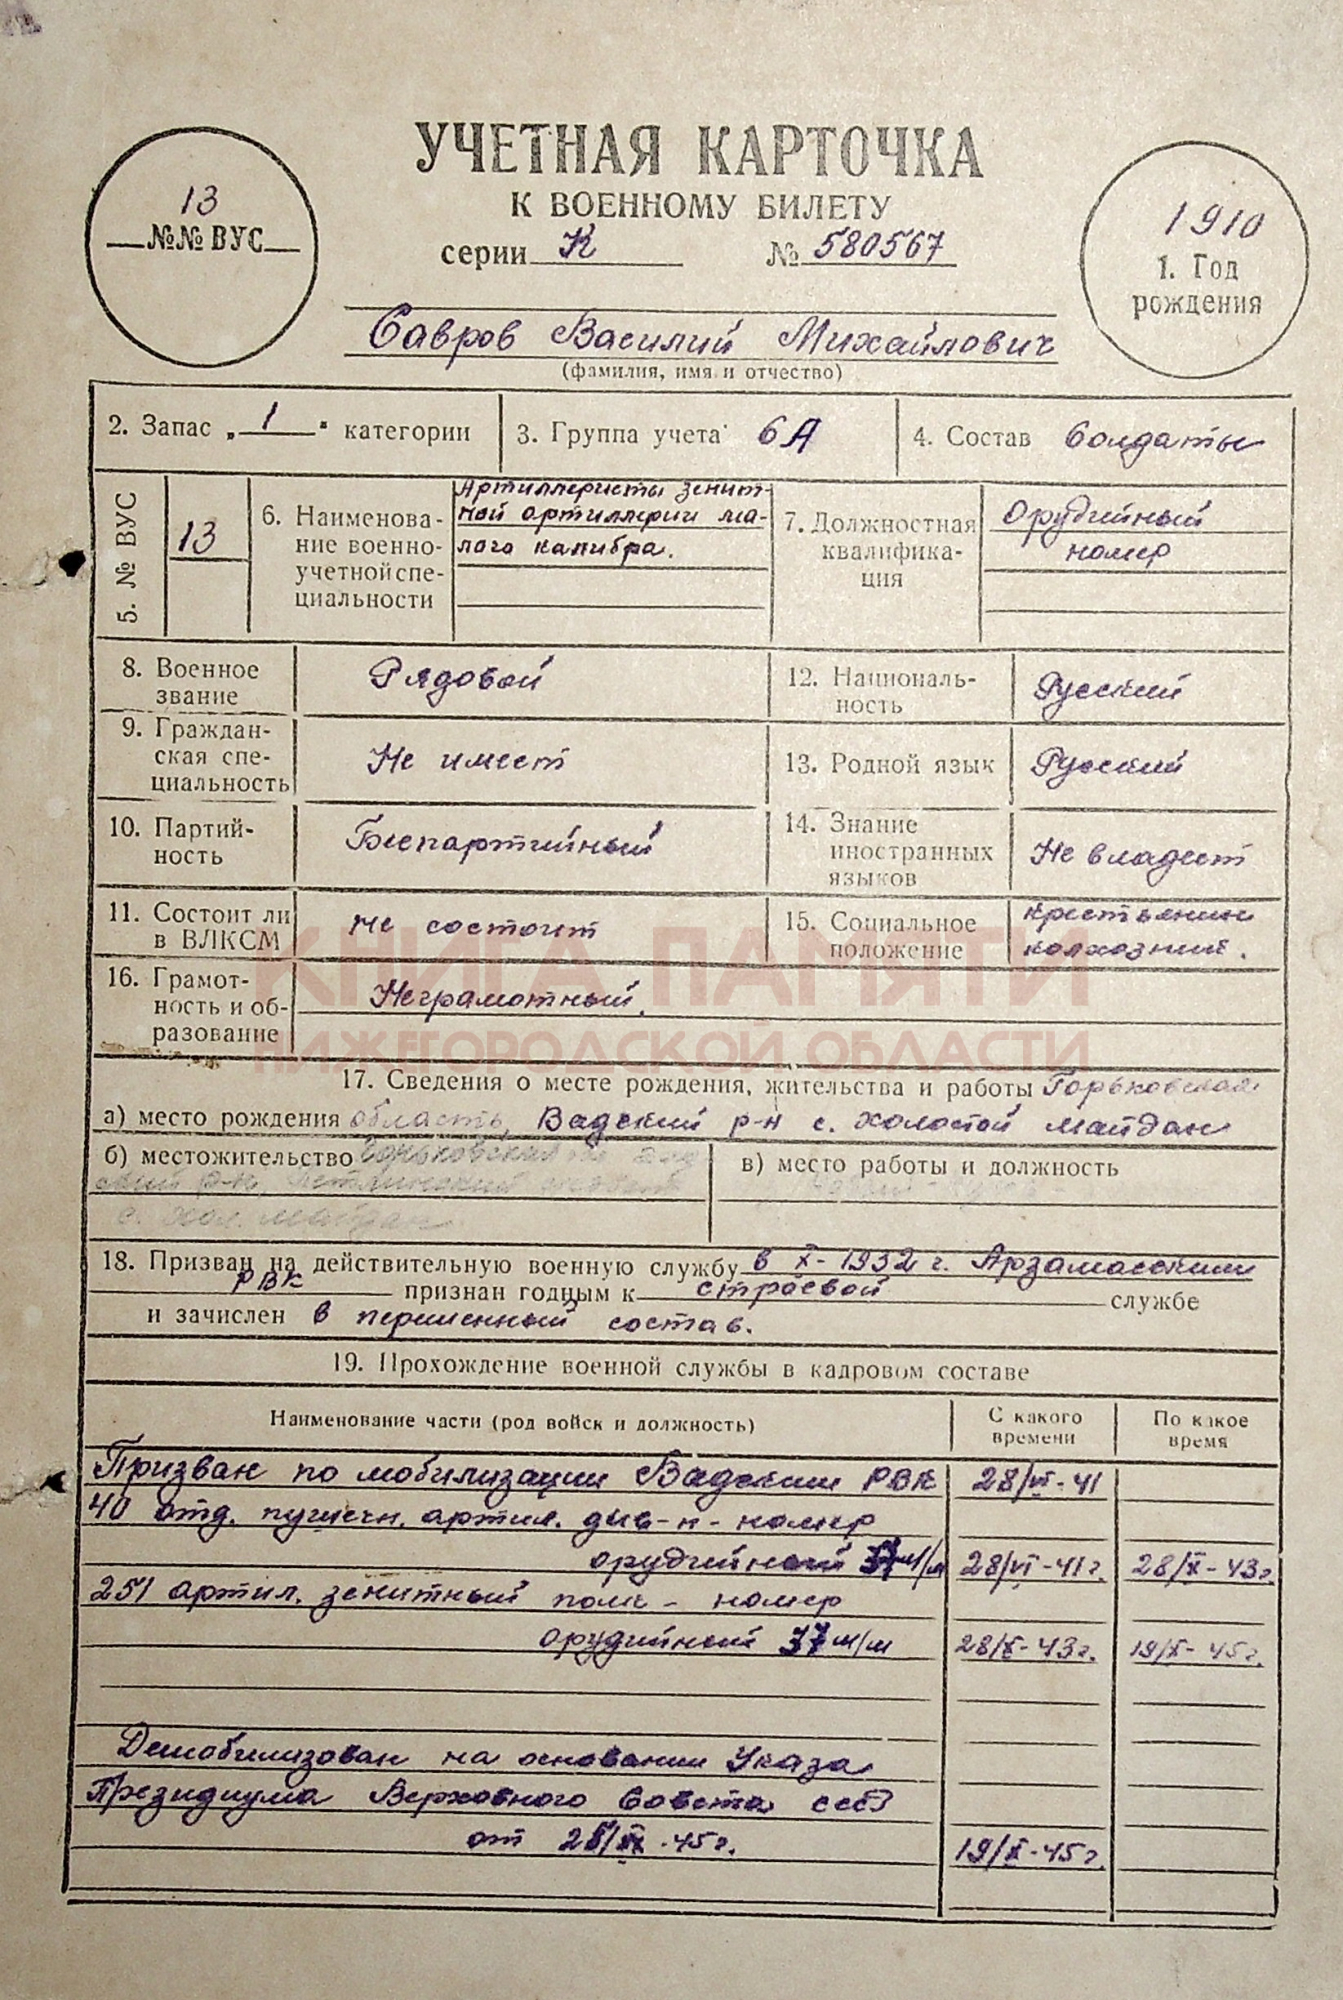 УЧЕТНАЯ КАРТОЧКА
К ВОЕННОМУ БИЛЕТУ
серии К № 580567
13
№№ ВУС
1910
1. Год
рождения
Савров Василий Михайлович
(фамилия, имя и отчество)
2. Запас „1" категории
3. Группа учета 6А
4. Состав Солдаты
5. № ВУС
13
6. Наименова-
ние военно-
учетной спе-
циальности
Артиллеристы зенит-
ной артиллерии ма-
лого калибра.
7. Должностная
квалифика-
ция
Орудийный
номер
8. Военное
звание
Рядовой
12. Националь-
ность
Русский
9. Граждан-
ская спе-
циальность
Не имеет
13. Родной язык
Русский
10. Партий-
ность
Беспартийный
14. Знание
иностранных
языков
Не владеет
11. Состоит ли
в ВЛКСМ
не состоит
15. Социальное
положение
крестьянин
колхозник.
16. Грамот-
ность и об-
разование
Неграмотный.
КНИГА ПАМЯТИ
НИЖЕГОРОДСКОЙ ОБЛАСТИ
17. Сведения о месте рождения, жительства и работы Горьковская
а) место рождения область, Вадский р-н с. Холостой майдан
б) местожительство Горьковская
ский р-н,
с. Хол. майдан
в) место работы и должность
18. Призван на действительную военную службу в X-1932 г. Арзамасским
РВК признан годным к строевой службе
и зачислен в переменный состав.
19. Прохождение военной службы в кадровом составе
Наименование части (род войск и должность)
С какого
времени
По какое
время
Призван по мобилизации Вадским РВК 28/VI-41
40 отд. пушечн. артил. див-н - номер
орудийный 37 м/м 28/VI-41г. 28/X-43г.
251 артил. зенитный полк - номер
орудийный 37 м/м 28/X-43г. 19/X-45г.
Демобилизован на основании Указа
Президиума Верховного Совета СССР
от 25/IX-45г. 19/X-45г.